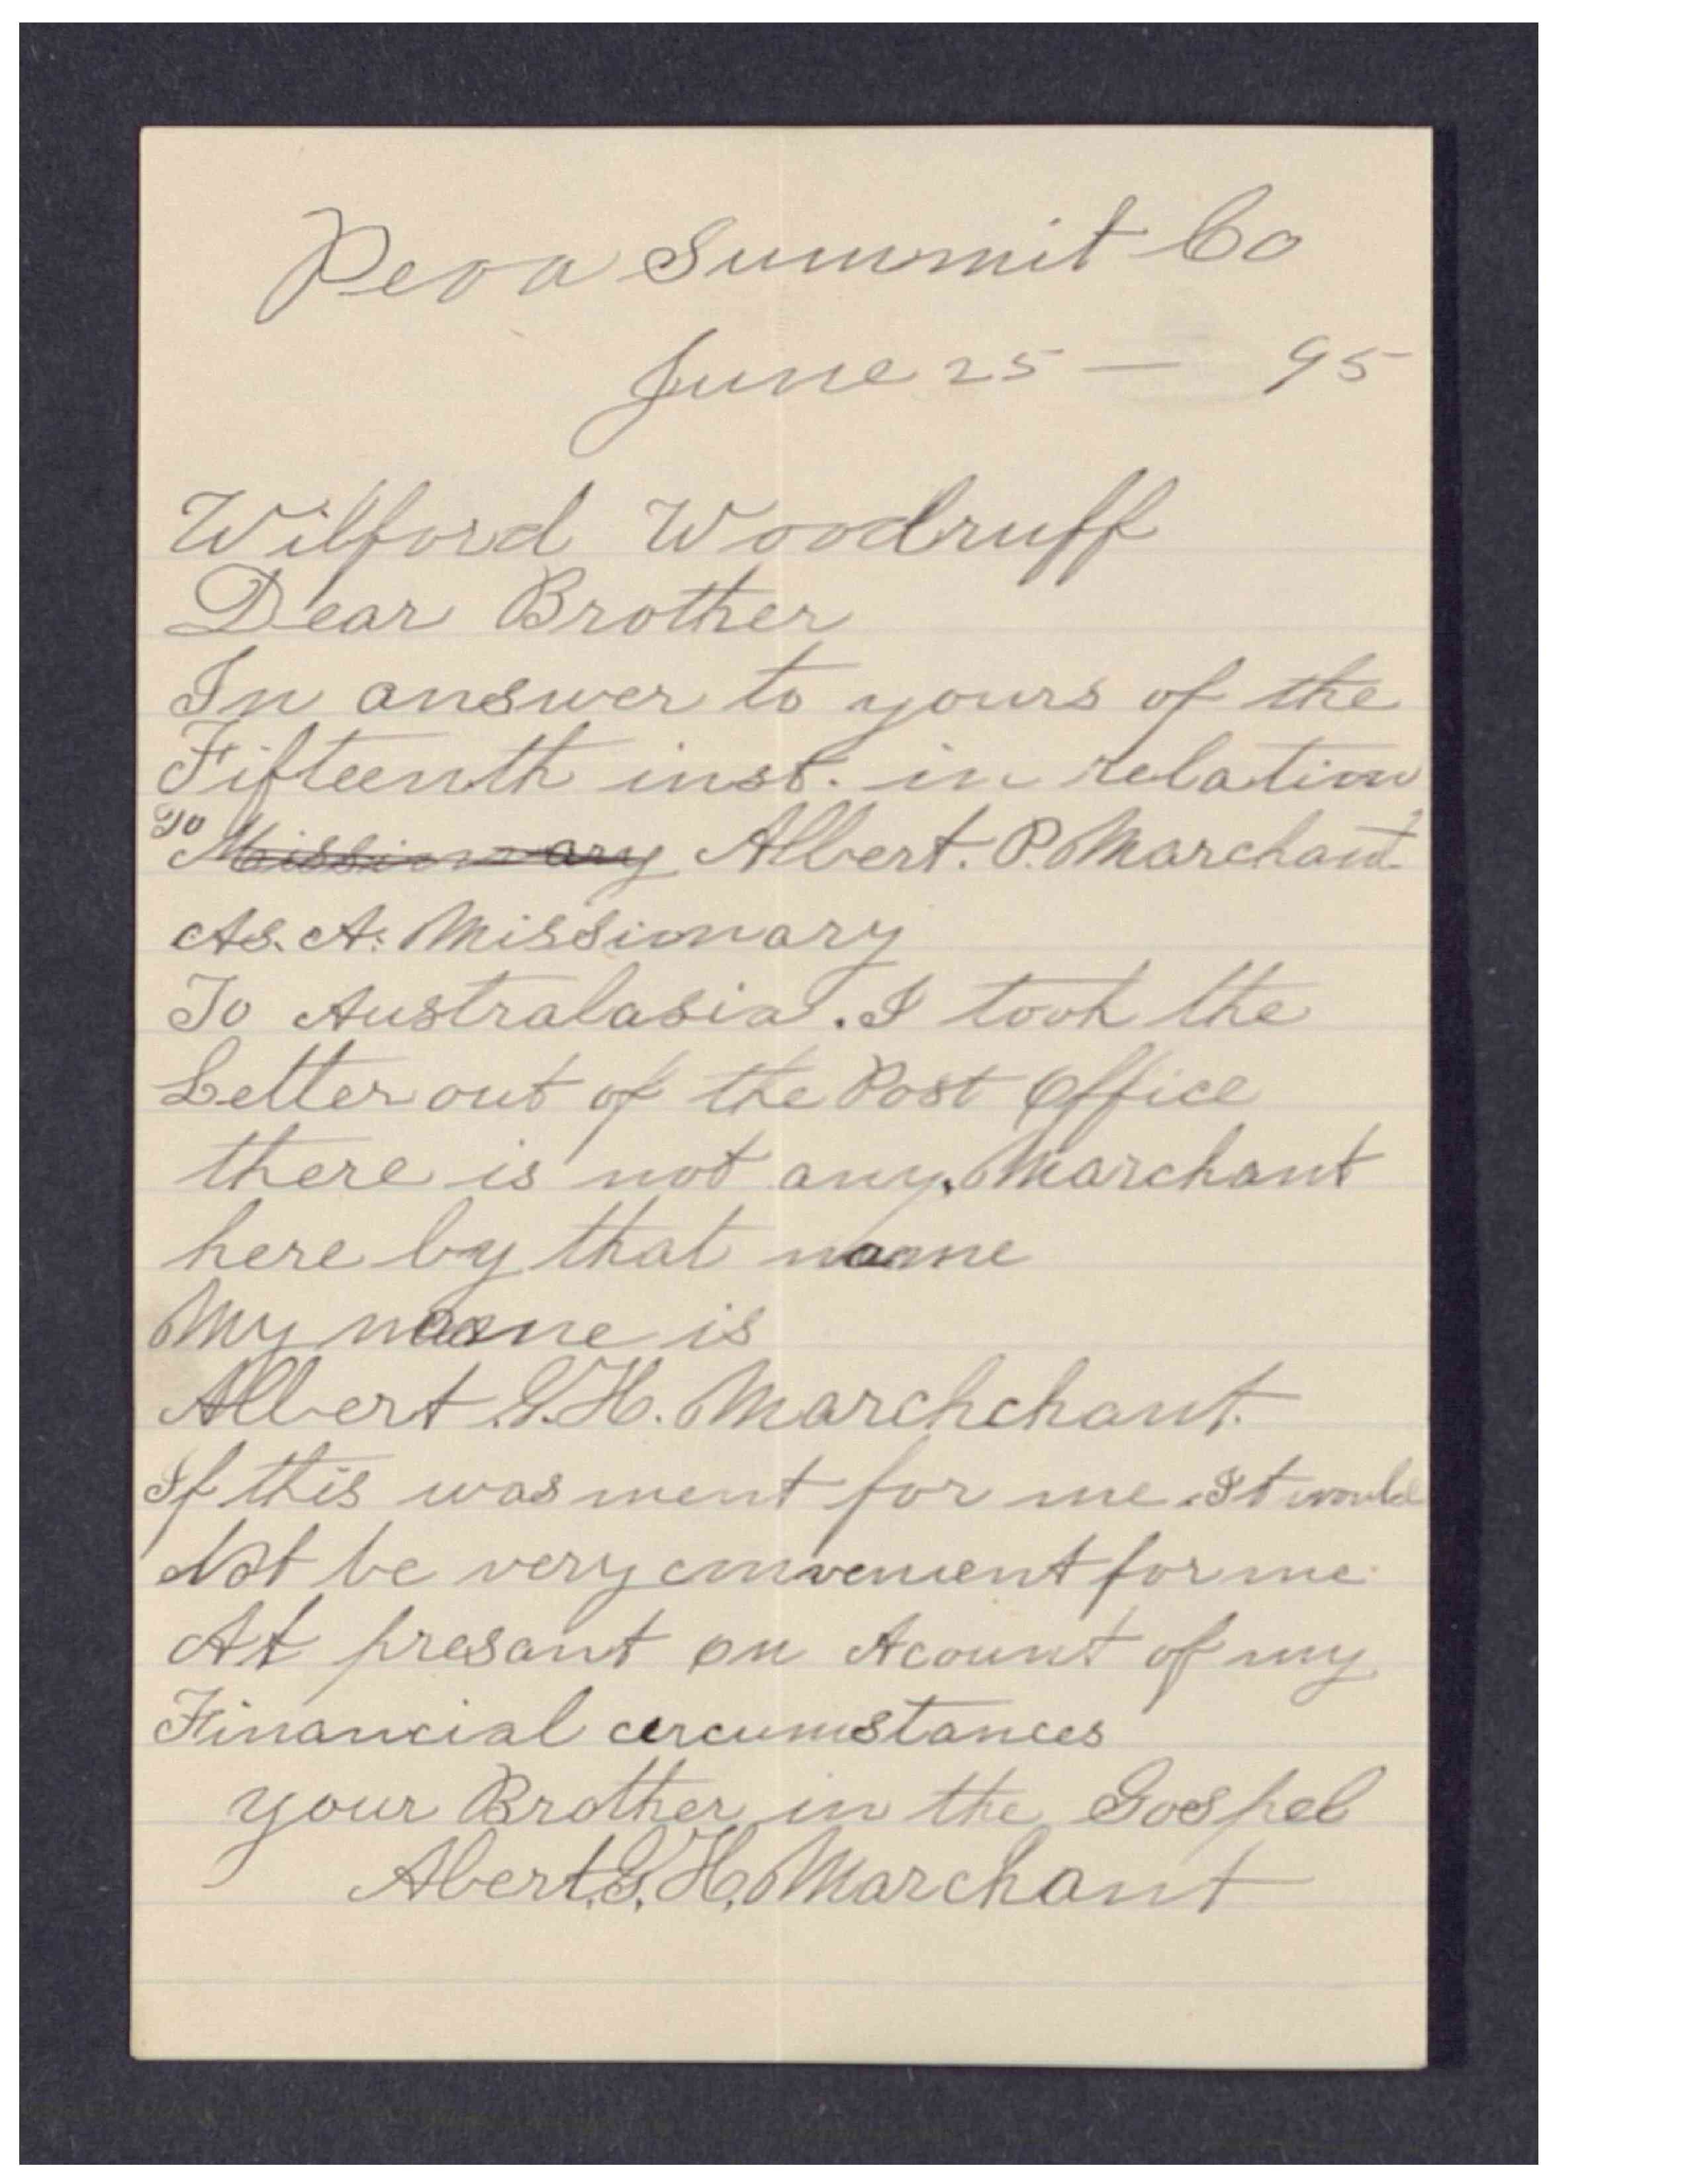 Peoa Summit Co
June 25 — 95
Wilford Woodruff
Dear Brother
In answer to yours of the
Fifteenth inst. in relation
To Missionary Albert. P. Marchant
As. A. Missionary
To Australasia. I took the
Letter out of the Post Office
there is not any. Marchant
here by that name
My name is
Albert G. H. Marchchant.
If this was ment for me. It would
Not be very convenient for me.
At presant on Acount of my
Financial circumstances
your Brother in the Gospel
Abert. G. H. Marchant